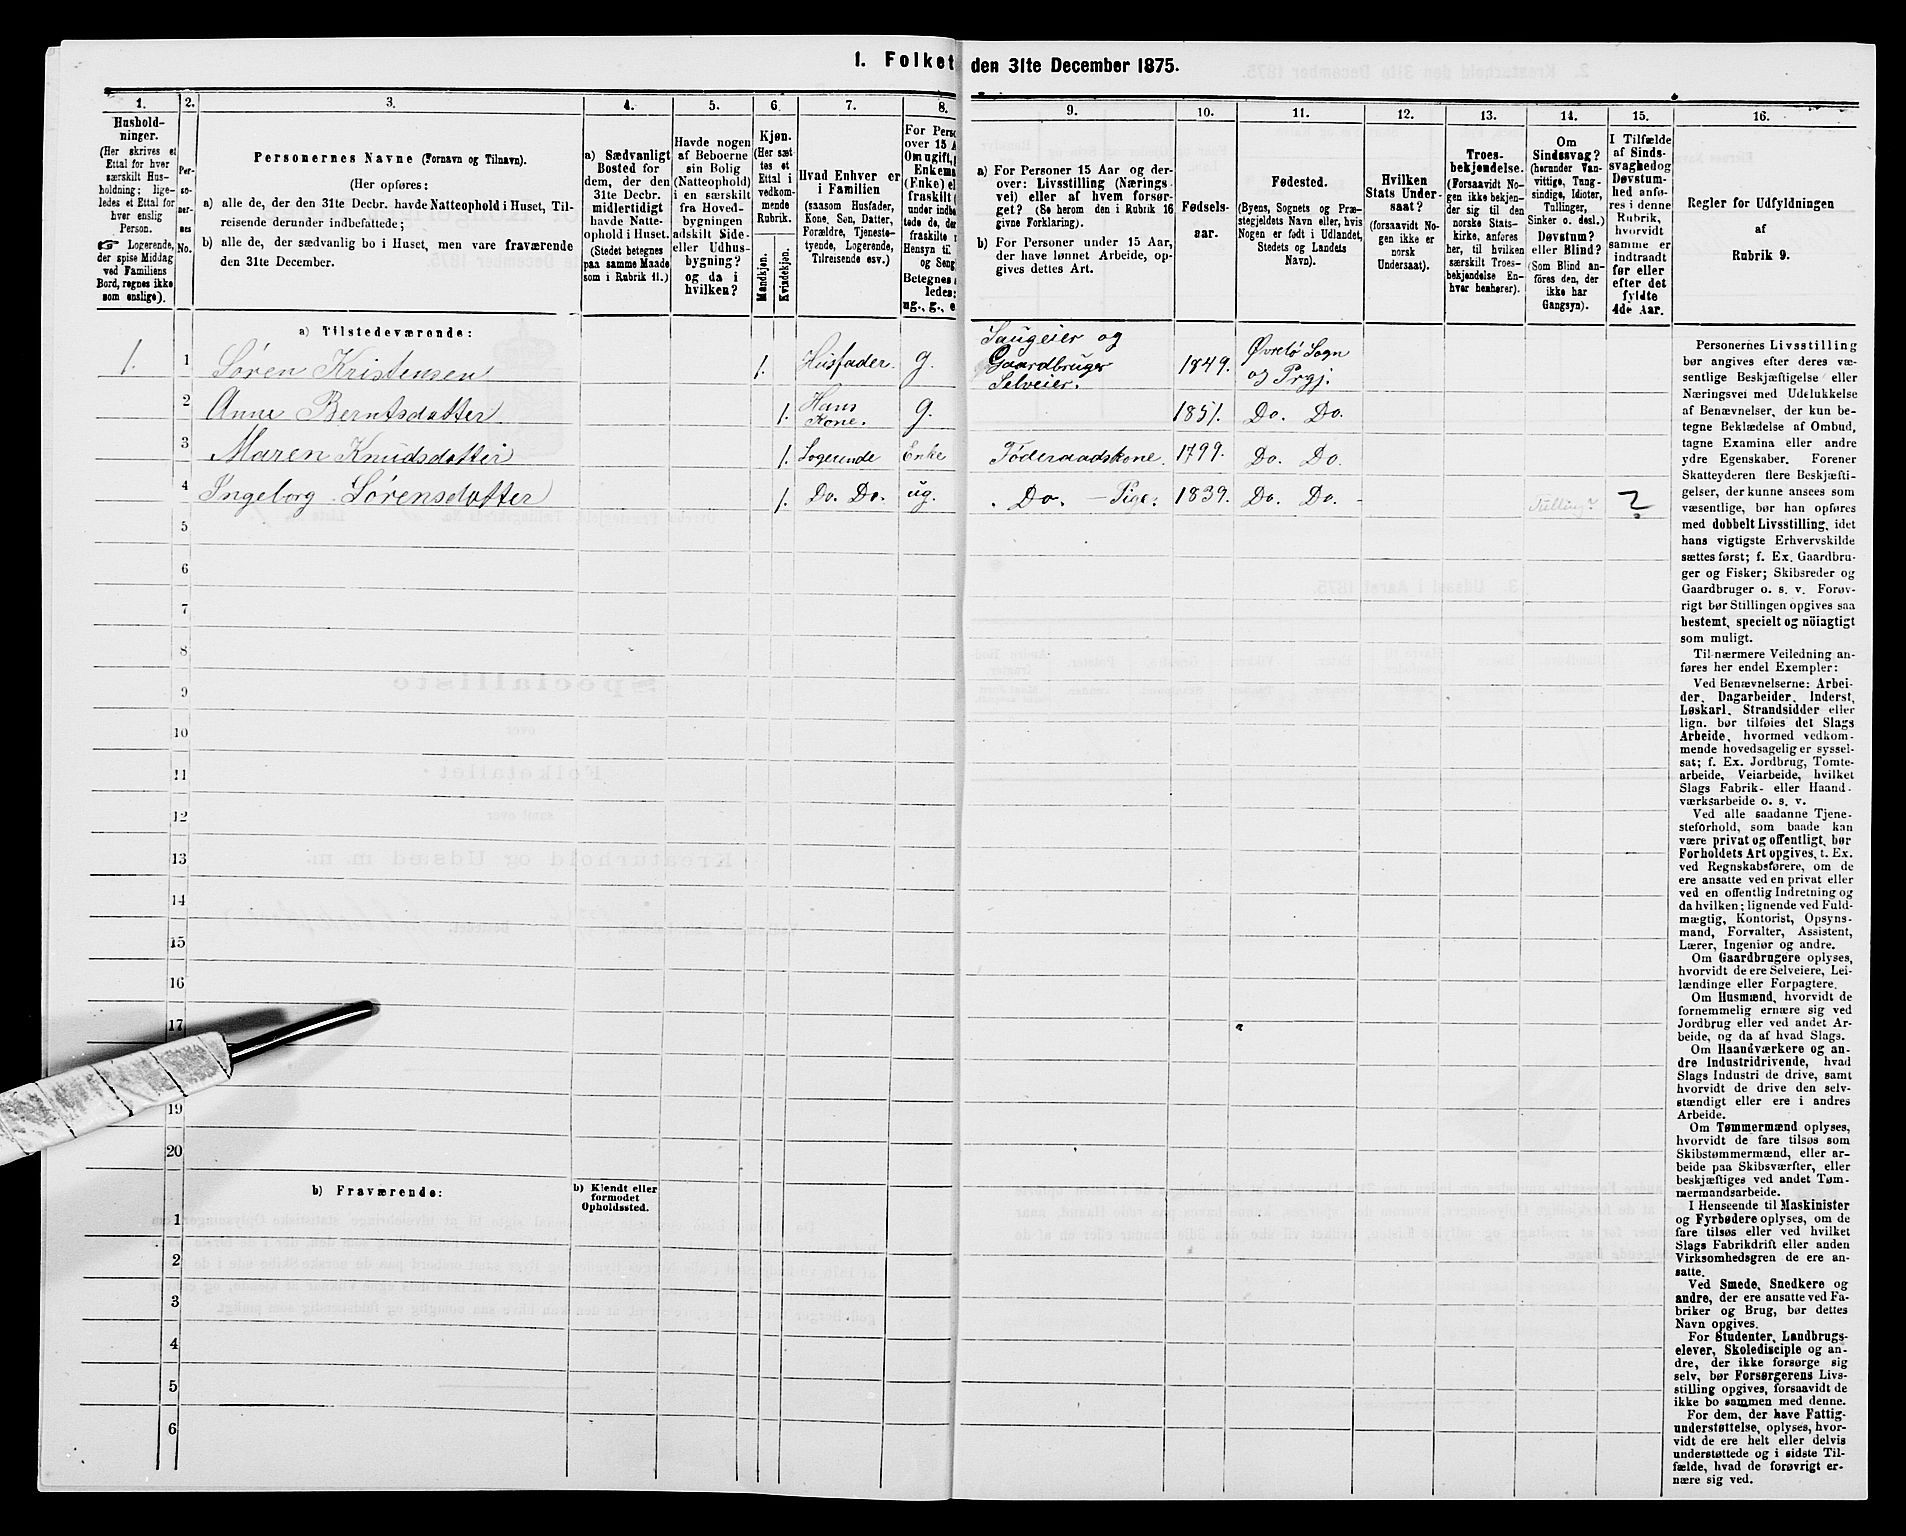 1. Folket
den 31te December 1875.
1.
Hushold-
ninger.
(Her skrives et
Ettal for hver
særskilt Hus-
holdning; lige-
ledes et Ettal for
hver enslig
Person.
☞ Logerende,
der spise Middag
ved Familiens
Bord, regnes ikke
som enslige).
2.
Per-
so-
ner-
nes
No.
3.
Personernes Navne (Fornavn og Tilnavn).
(Her opføres:
a) alle de, der den 31te Decbr. havde Natteophold i Huset, Til-
reisende derunder indbefattede;
b) alle de, der sædvanlig bo i Huset, men vare fraværende
den 31te December.
4.
a) Sædvanligt
Bosted for
dem, der den
31te Decbr.
midlertidigt
havde Natte-
ophold i Huset.
(Stedet betegnes
paa samme Maade
som i Rubrik 11.)
5.
Havde nogen
af Beboerne
sin Bolig
(Natteophold)
i en særskilt
fra Hoved-
bygningen
adskilt Side-
eller Udhus-
bygning?
og da i
hvilken?
6.
Kjøn.
(Her sæt-
tes et
Ettal i
vedkom-
mende
Rubrik.
Mandkjøn.
Kvindekjøn.
7.
Hvad Enhver er
i Familien
(saasom Husfader,
Kone, Søn, Datter,
Forældre, Tjeneste-
tyende, Logerende,
Tilreisende osv.)
8.
For Perso
over 15 A
Om ugift,
Enkema
(Enke) el
fraskilt (
under indbe
tede de, der
fraskilte
Hensyn til
og Seng
Betegnes
ledes:
ug., g., e
9.
a) For Personer 15 Aar og der-
over: Livsstilling (Nærings-
vei) eller af hvem forsør-
get? (Se herom den i Rubrik 16
givne Forklaring).
b) For Personer under 15 Aar,
der have lønnet Arbeide, op-
gives dettes Art.
10.
Fødsels-
aar.
11.
Fødested.
(Byens, Sognets og Præ-
stegjeldets Navn eller, hvis
Nogen er født i Udlandet,
Stedets og Landets
Navn).
12.
Hvilken
Stats Under-
saat?
(forsaavidt No-
gen ikke er
norsk
Undersaat).
13.
Troes-
bekjendelse.
(Forsaavidt No-
gen ikke bekjen-
der sig til den
norske Stats-
kirke, anføres
her, til hvilken
særskilt Troes-
bekjendelse En-
hver henhører).
14.
Om
Sindssvag?
(herunder Van-
vittige, Tung-
sindige, Idioter,
Tullinger,
Sinker o. desl.)
Døvstum?
eller Blind?
(Som Blind an-
føres den, der
ikke har
Gangsyn).
15.
I Tilfælde
af Sinds-
svaghed og
Døvstum-
hed anfø-
res i denne
Rubrik,
hvorvidt
samme er
indtraadt
før eller
efter det
fyldte
4de Aar.
16.
Regler for Udfyldningen
af
Rubrik 9.
a) Tilstedeværende:
1. 1 Søren Kristensen 1. Husfader. g. Saugeier og Gaardbruger Selveier. 1849. Øvrebö Sogn og Prgj.
2 Anne Berntsdatter 1. Hans Kone. g. 1851. Do. Do.
3 Maren Knudsdatter 1. Logerende Enke Föderaadskone. 1799. Do. Do.
4 Ingeborg Sørensdatter 1. Do. Do. ug. Do. — Pige. 1839. Do. Do. Tulling? ?
5
6
7
8
9
10
11
12
13
14
15
16
17
19
20
b) Fraværende:
b) Kjendt eller
formodet
Opholdssted.
1
2
3
4
5
6
Personernes Livsstilling
bør angives efter deres væ-
sentlige Beskjæftigelse eller
Næringsvei med Udelukkelse
af Benævnelser, der kun be-
tegne Beklædelse af Ombud,
tagne Examina eller andre
ydre Egenskaber. Forener
Skatteyderen flere Beskjæfti-
gelser, der kunne ansees som
væsentlige, bør han opføres
med dobbelt Livsstilling, idet
hans vigtigste Erhvervskilde
sættes først; f. Ex. Gaardbru-
ger og Fisker; Skibsreder og
Gaardbruger o. s. v. Forøv-
rigt bør Stillingen opgives saa
bestemt, specielt og nöiagtigt
som muligt.
Til nærmere Veiledning an-
føres her endel Exempler:
Ved Benævnelserne: Arbei-
der, Dagarbeider, Inderst,
Løskarl, Strandsidder eller
lign. bør tilføies det Slags
Arbeide, hvormed vedkom-
mende hovedsagelig er syssel-
sat; f. Ex. Jordbrug, Tomte-
arbeide, Veiarbeide, hvilket
Slags Fabrik- eller Haand-
værksarbeide o. s. v.
Ved alle saadanne Tjene-
steforhold, som baade kan
være privat og offentligt, bør
Forholdets Art opgives, t. Ex.
ved Regnskabsførere, om de
ere ansatte ved en privat eller
ved en offentlig Indretning og
da hvilken; lignende ved Fuld-
mægtig, Kontorist, Opsyns-
mand, Forvalter, Assistent,
Lærer, Ingeniør og andre.
Om Gaardbrugere oplyses,
hvorvidt de ere Selveiere, Lei-
lændinge eller Forpagtere.
Om Husmænd, hvorvidt de
fornemmelig ernære sig ved
Jordbrug eller ved andet Ar-
beide, og da af hvad Slags.
Om Haandværkere og an-
dre Industridrivende, hvad
Slags Industri de drive, samt
hvorvidt de drive den selv-
stændigt eller ere i andres
Arbeide.
Om Tømmermænd oplyses,
hvorvidt de fare tilsøs som
Skibstømmermænd, eller ar-
beide paa Skibsværfter, eller
beskjæftiges ved andet Tøm-
mermandsarbeide.
I Henseende til Maskinister
og Fyrbødere oplyses, om de
fare tilsøs eller ved hvilket
Slags Fabrikdrift eller anden
Virksomhedsgren de ere an-
satte.
Ved Smede, Snedkere og
andre, der ere ansatte ved Fa-
briker og Brug, bør dettes
Navn opgives.
For Studenter, Landbrugs-
elever, Skoledisciple og an-
dre, der ikke forsørge sig
selv, bør Forsørgerens Livs-
stilling opgives, forsaavidt de
ikke bo sammen med denne.
For dem, der have Fattig-
understøttelse, oplyses, hvor-
vidt de ere helt eller delvis
understøttede og i sidste Til-
fælde, hvad de forøvrigt er-
nære sig ved.